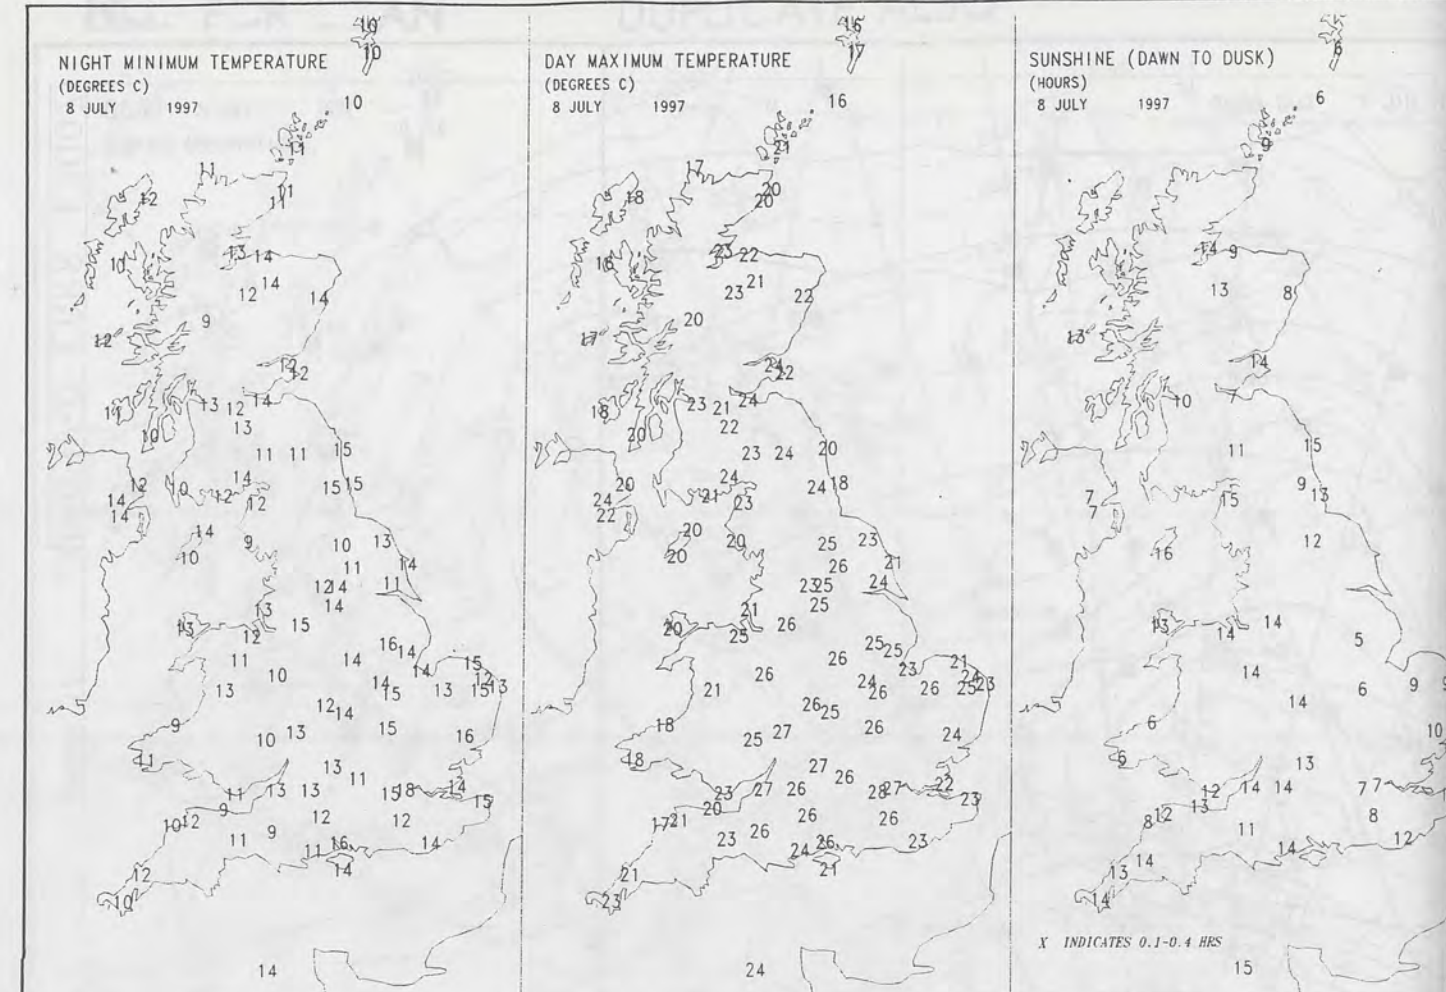 NIGHT MINIMUM TEMPERATURE
(DEGREES C)
8 JULY 1997
10
10
10
11
11
11
12
11
13 14
10
14
12 14
9
12
12
12
13 12 14
11
13
10
11 11 15
14
12 10 12 15 15
14 12
14
14
10 9 10 13
11 14
12 14 11
13 14
13 12 15
16 14
11 14 15
10 14
13 14 15 13 15 12 13
12 14
9 13 15
10 16
11 13
11
11 13 13 15 18 14
15
9
10 12 12 12
11 9
11 16 14
14
12
10
14
DAY MAXIMUM TEMPERATURE
(DEGREES C)
8 JULY 1997
16
17
16
21
17
20
18 20
23 22
16
21
23 22
20
17
24
22
23 21 24
18
22
20
23 24 20
24
20 21 24 18
24 23
22
20
20 20 25 23
26 21
23 25 24
21 25
20 25 26
25 25
26 21
26 23 24
21 24 26 26 25 23
26 25
18 27 26
25 24
18 27
26
23 27 26 28 27 22
23
20
17 21 26 26
23 26
24 26 23
21
21
23
24
SUNSHINE (DAWN TO DUSK)
(HOURS)
8 JULY 1997
6
6
9
14 9
13 8
13
14
10 X
11 15
7 15 9 13
7
16 12
13 14 14
5
14
14 6 9 9
6
10
6 13
12 14 14 7 7
13
8 12 11 8
14 12
14
13
14
X INDICATES 0.1-0.4 HRS
15